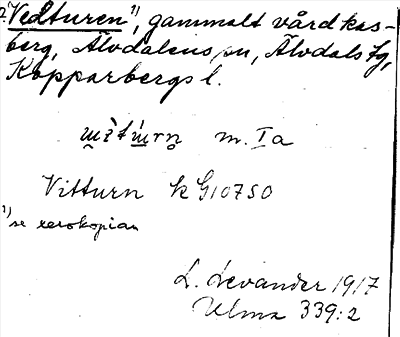 Vedturen¹⁾, gammalt vårdkas-
berg, Älvdalens sn, Älvdals tg,
Kopparbergs l.
m. Ia
Vitturn k G10750
¹⁾ se xerokopian
L. Levander 1917
Ulma 339:2